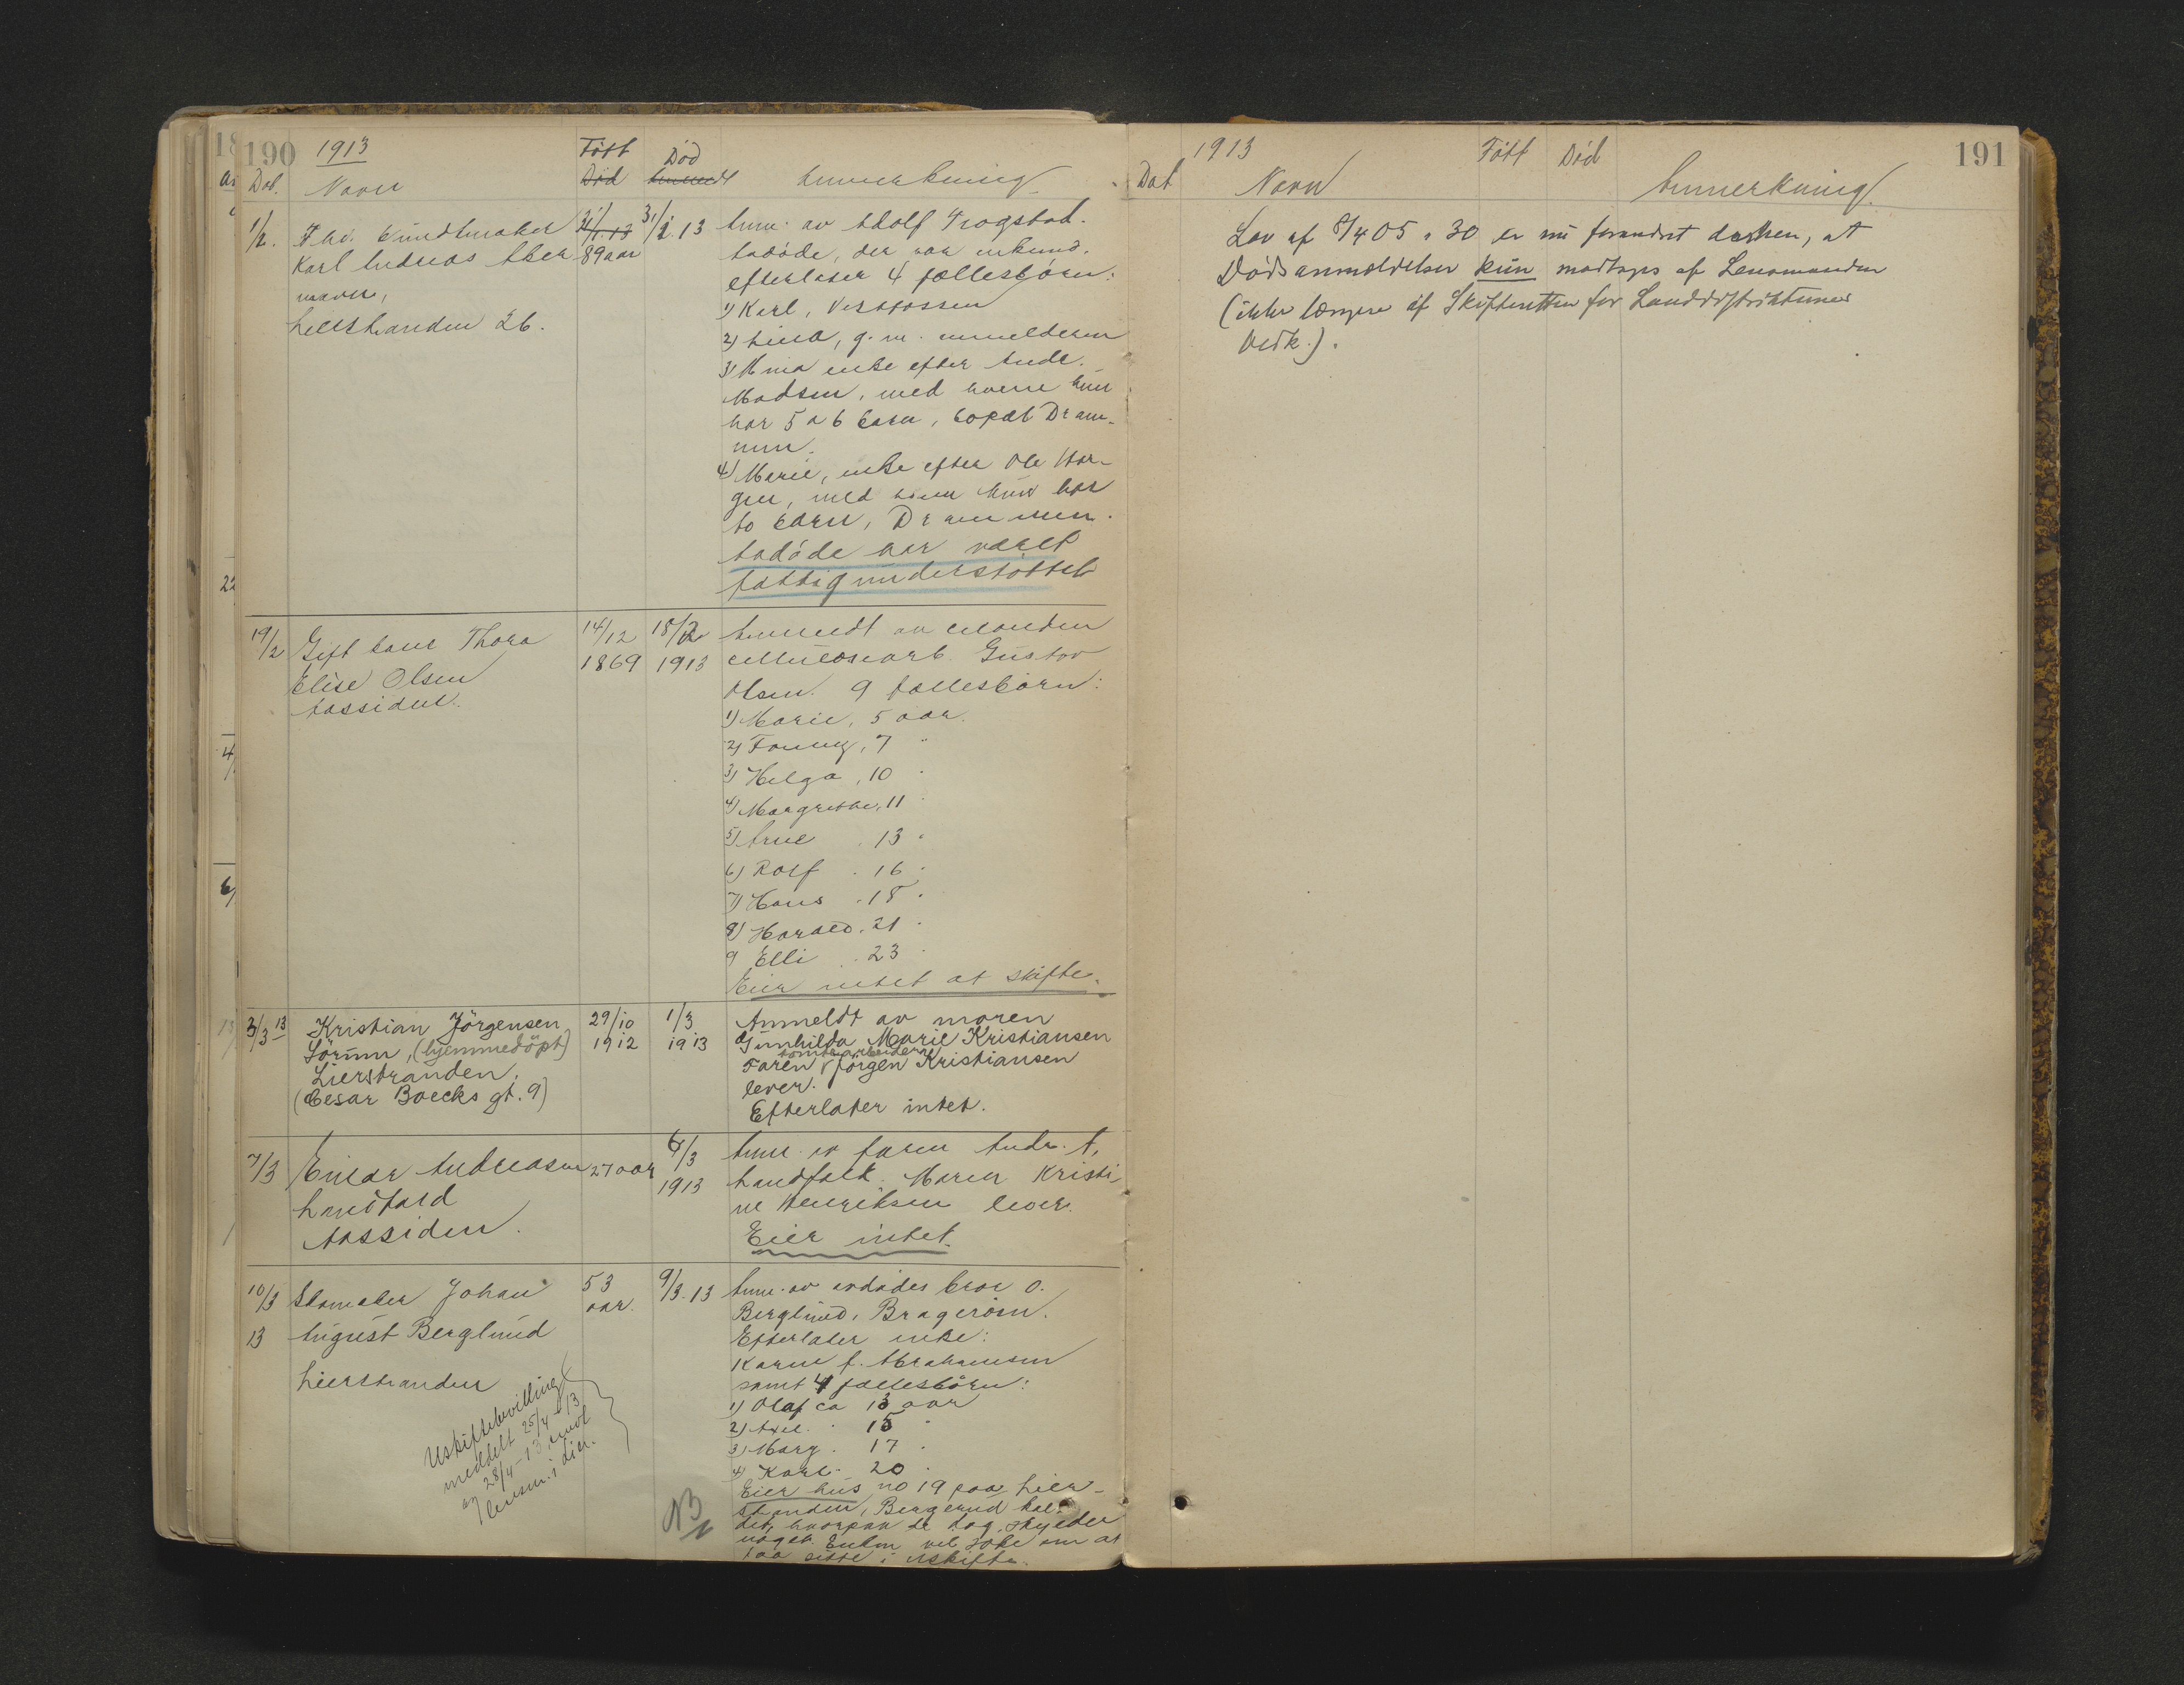 190 1913 Født Død
Dat. Navn Død Anmeldt Anmerkning
1/2. Fhv. Buntmaker 31/1.13 31/1.13 Anm. av Adolf Frogstad.
Karl Andreas Aker 89 aar Avdøde, der var enkemd.
efterlater 4 fællesbørn:
Lierstranden 26. 1) Karl, Vestfossen
2) Lina, g.m. anmelderen
3) Mina enke efter Andr.
Madsen, med hvem hun
har 5 a 6 barn, bopæl Dram-
men.
4) Marie, enke efter Ole Hor-
gen, med hvem hun har
to barn, Drammen.
Avdøde har været
fattigunderstøttet
19/2 Gift kone Thora 14/12 18/2 Anmeldt av manden
Elise Olsen 1869 1913 cellulosearb. Gustav
Aassiden. Olsen. 9 fællesbørn:
1) Marie, 5 aar.
2) Fanny, 7 "
3) Helga, 10 "
4) Margrethe, 11 "
5) Arne . 13 "
6) Rolf . 16 "
7) Hans . 18 "
8) Harald . 21 "
9 Elli . 23 "
Eier intet at skifte.
3/3 13 Kristian Jörgensen 29/10 1/3 Anmeldt av moren
Sörum, (hjemmedöpt) 1912 1913 Gunhilda Marie Kristiansen
Lierstranden. tomtearbeider
(Cesar Boecks gt. 9) Faren Jörgen Kristiansen
lever.
Efterlater intet.
7/3 Einar Andreasen 27 aar 6/3 Anm. av faren Andr. A.
Landfald 1913 Landfald. Maren Kristi-
Aassiden. ne Henriksen lever.
Eier intet.
10/3 Skomaker Johan 53 9/3.13 Anm. av avdødes bror O.
13 August Berglund aar. Berglund, Bragerøen.
Efterlater enke:
Lierstranden Karen f. Abrahamsen
samt 4 fællesbørn:
1) Olaf ca 13 aar
2) Axel . 15 "
3) Marg. 17 "
4) Karl . 20 "
Uskiftebevilling
meddelt 25/4-13
og 28/4-13 sendt
lensm. i Lier.
Eier hus no 19 paa Lier-
stranden, Bergerud kal-
det, hvorpaa de dog skylder
noget. Enken vil søke om at
faa sitte i uskifte.
NB
1913 Født Død 191
Dat Navn Anmerkning
Lov af 8/4 05 § 30 er nu forandret derhen, at
Dødsanmeldelser kun modtages af Lensmanden
(ikke længere af Skifteretten for Landdistrikternes
Vedk.).